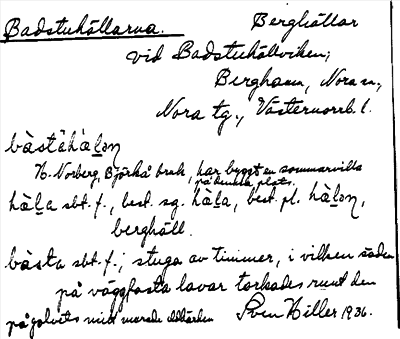 Badstuhällarna. Berghällar
vid Badstuhällviken;
Berghamn, Nora sn,
Nora tg., Västernorrl. l.
bàståhàḷǝn
N. Norberg, Björkå bruk, har byggt en sommarvilla
på denna plats.
hàḷa sbt. f., best. sg. hàḷa, best. pl. hàḷǝn,
berghäll.
bàsta sbt. f.; stuga av timmer, i vilken säden
på väggfasta lavar torkades runt den
på golvets mitt murade eldstaden Sven Hiller 1936.